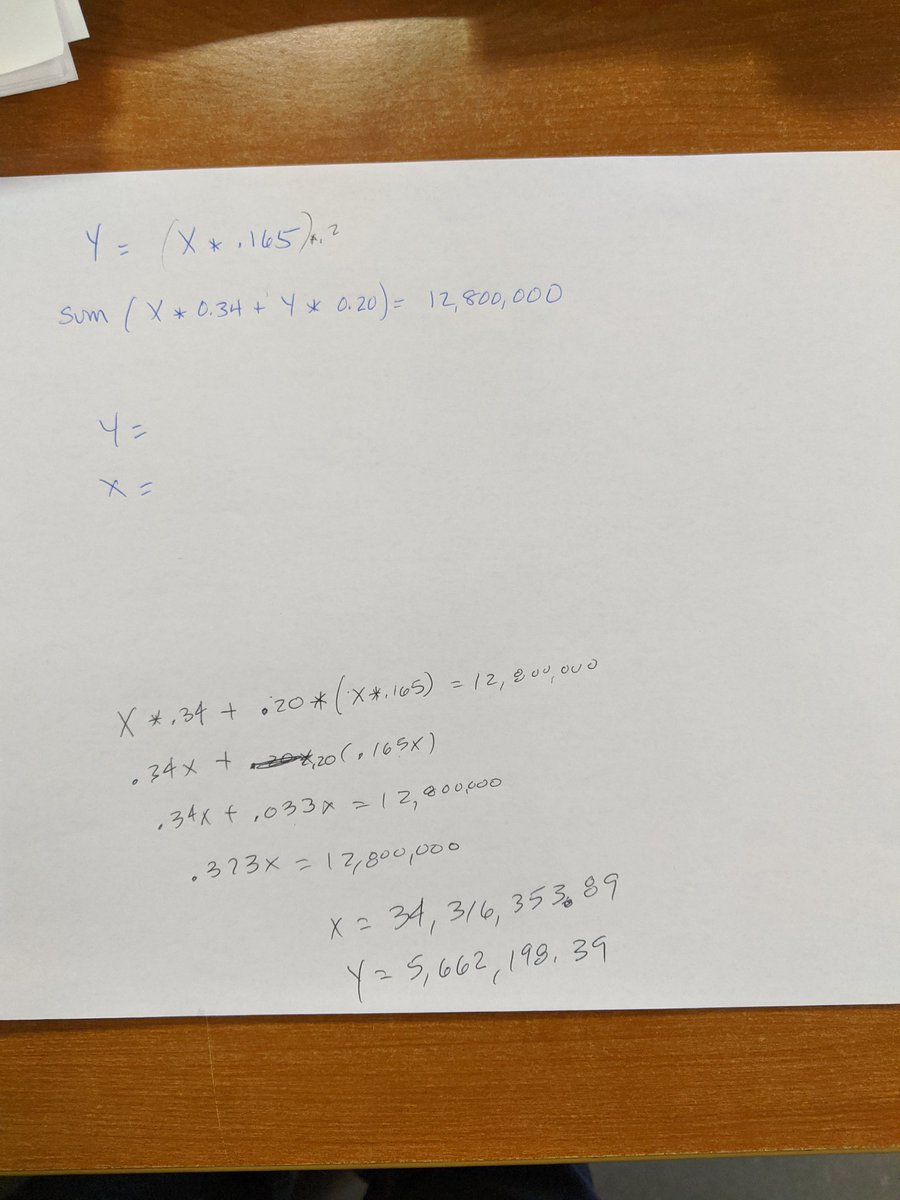 Y = (X * .165)*.2
Sum (X * 0.34 + Y * 0.20) = 12,800,000
Y =
X =
X * .34 + .20 * (X * .165) = 12,800,000
.34x + .20 (.165x)
.34x + .033x = 12,800,000
.373x = 12,800,000
X = 34,316,353.89
Y = 5,662,198.39